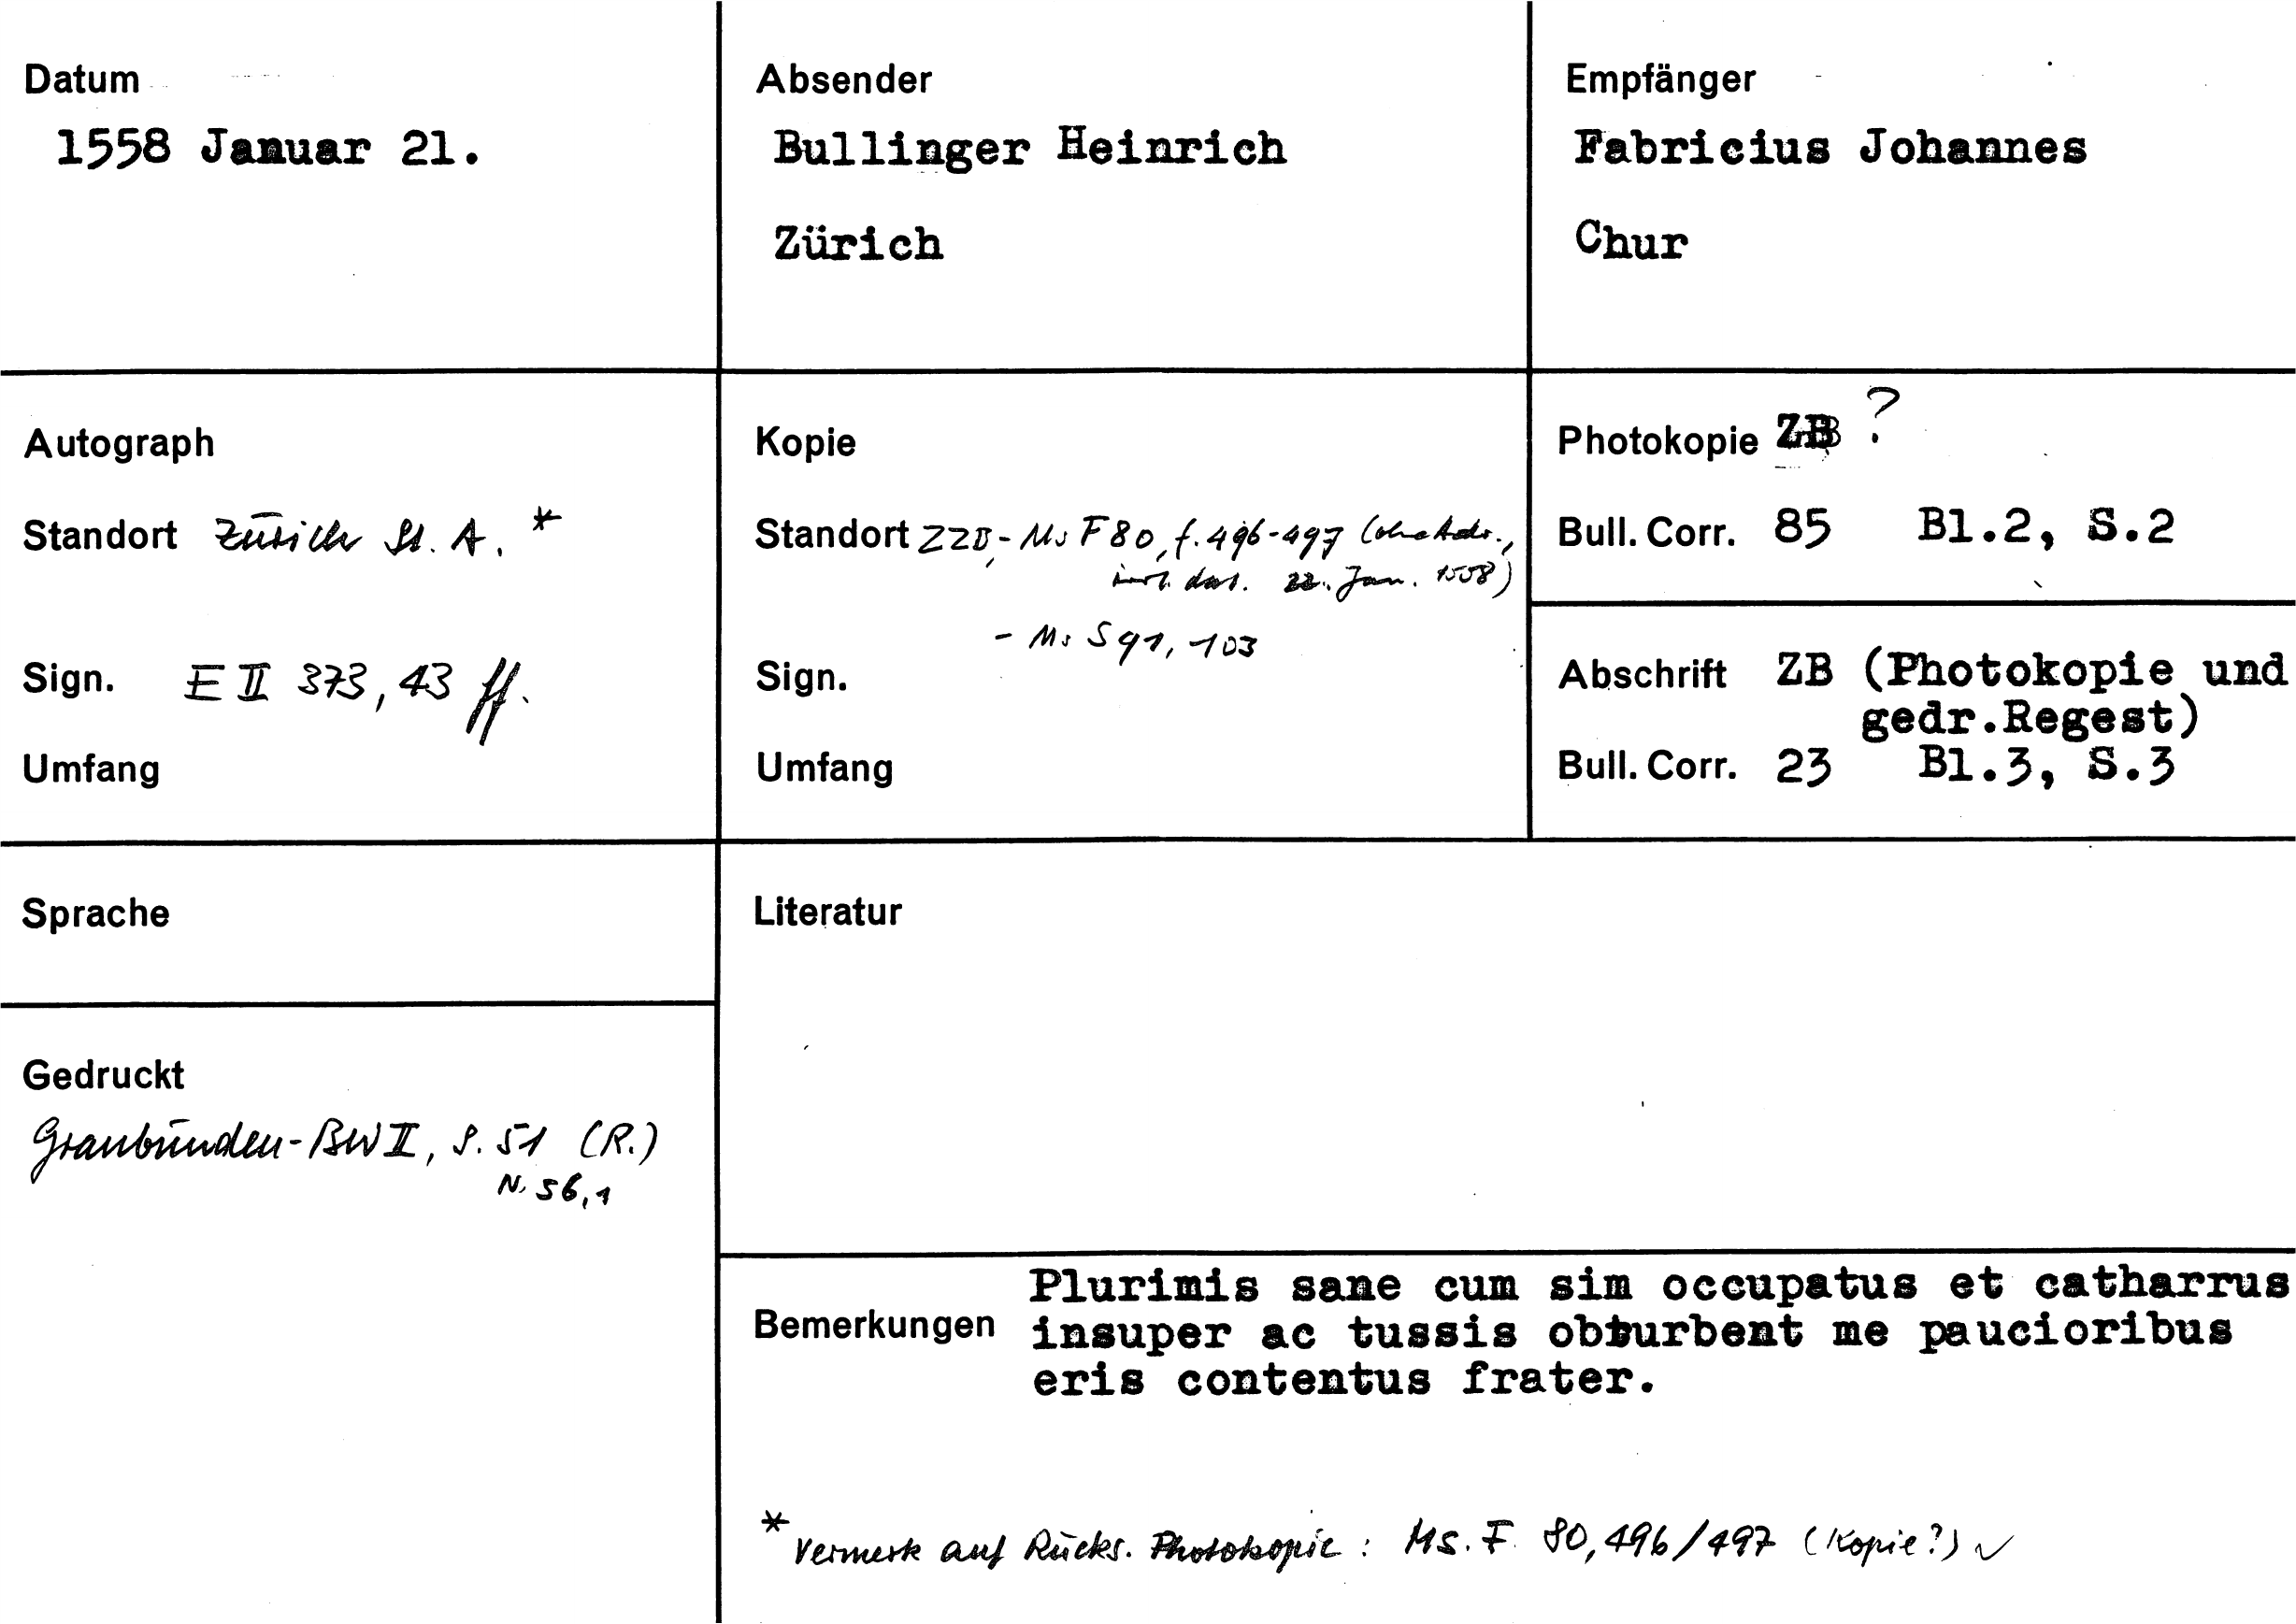 Datum
1558 Januar 21.
Absender
Bullinger Heinrich
Zürich
Empfänger
Fabricius Johannes
Chur
Autograph
Standort Zürich St. A. *
Sign. E II 373, 43 ff.
Umfang
Kopie
Standort ZZB, - Ms F 80, f. 496-497 (ohne Adr.,
dat. 22. Jan. 1558)
- Ms S 91, 103
Sign.
Umfang
Photokopie ZB ?
Bull. Corr. 85 Bl.2, S.2
Abschrift ZB (Photokopie und
gedr.Regest)
Bull. Corr. 23 Bl.3, S.3
Sprache
Literatur
Gedruckt
Graubünden-BW II, S. 51 (R.)
N. 56,1
Bemerkungen
Plurimis sane cum sim occupatus et catharrus
insuper ac tussis obturbent me paucioribus
eris contentus frater.
* Vermerk auf Rücks. Photokopie : Ms. F 80, 496/497 (Kopie?) ✓